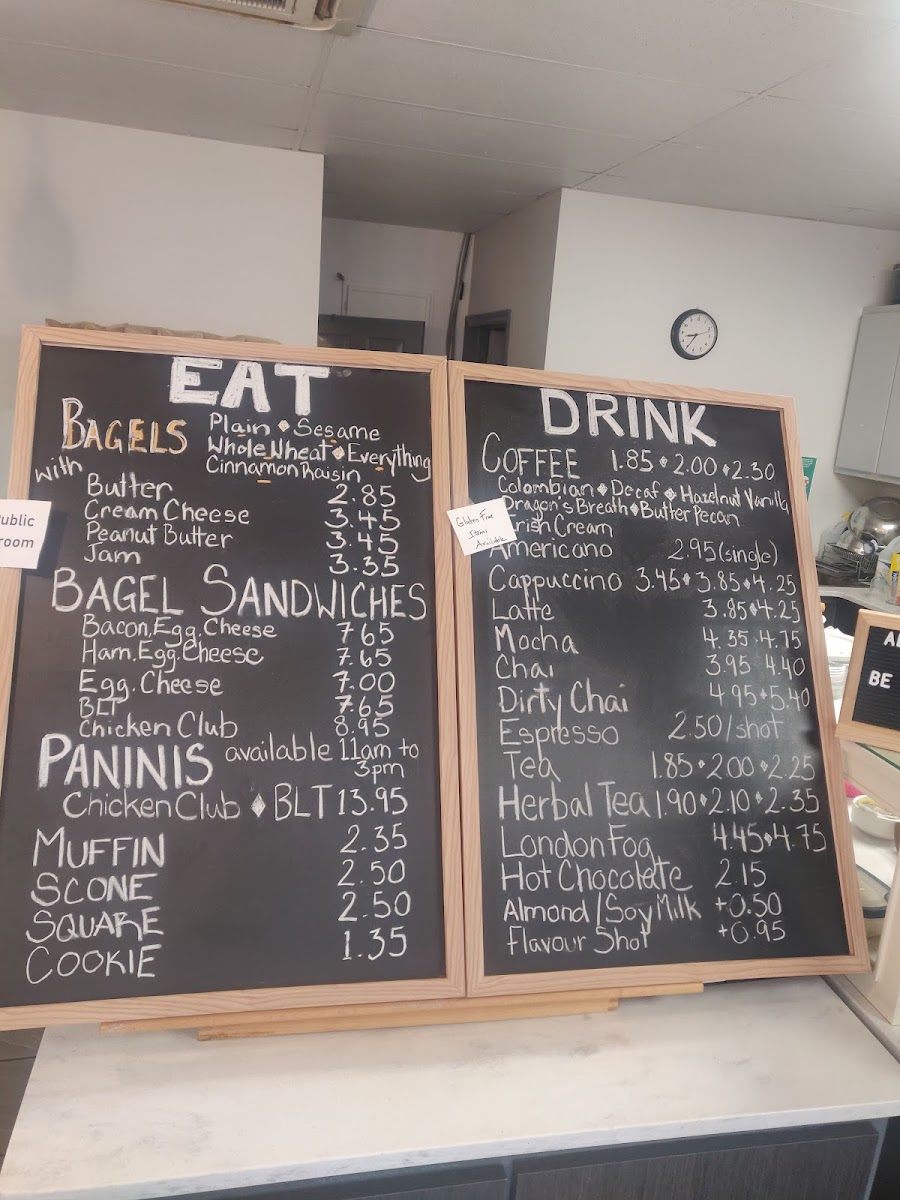 EAT
BAGELS Plain ♦ Sesame
Whole Wheat ♦ Everything
Cinnamon Raisin
with
Butter 2.85
Cream Cheese 3.45
Peanut Butter 3.45
Jam 3.35
BAGEL SANDWICHES
Bacon, Egg, Cheese 7.65
Ham, Egg, Cheese 7.65
Egg, Cheese 7.00
BLT 7.65
Chicken Club 8.95
PANINIS available 11am to
3pm
Chicken Club ♦ BLT 13.95
MUFFIN 2.35
SCONE 2.50
SQUARE 2.50
COOKIE 1.35
Public
room
DRINK
COFFEE 1.85 ♦ 2.00 ♦ 2.30
Colombian ♦ Decaf ♦ Hazelnut Vanilla
Dragon's Breath ♦ Butter Pecan
Irish Cream
Americano 2.95 (single)
Cappuccino 3.45 ♦ 3.85 ♦ 4.25
Latte 3.85 ♦ 4.25
Mocha 4.35 ♦ 4.75
Chai 3.95 ♦ 4.40
Dirty Chai 4.95 ♦ 5.40
Espresso 2.50/shot
Tea 1.85 ♦ 2.00 ♦ 2.25
Herbal Tea 1.90 ♦ 2.10 ♦ 2.35
London Fog 4.45 ♦ 4.75
Hot Chocolate 2.15
Almond/Soy Milk +0.50
Flavour Shot +0.95
Gluten Free
Items
Available
BE